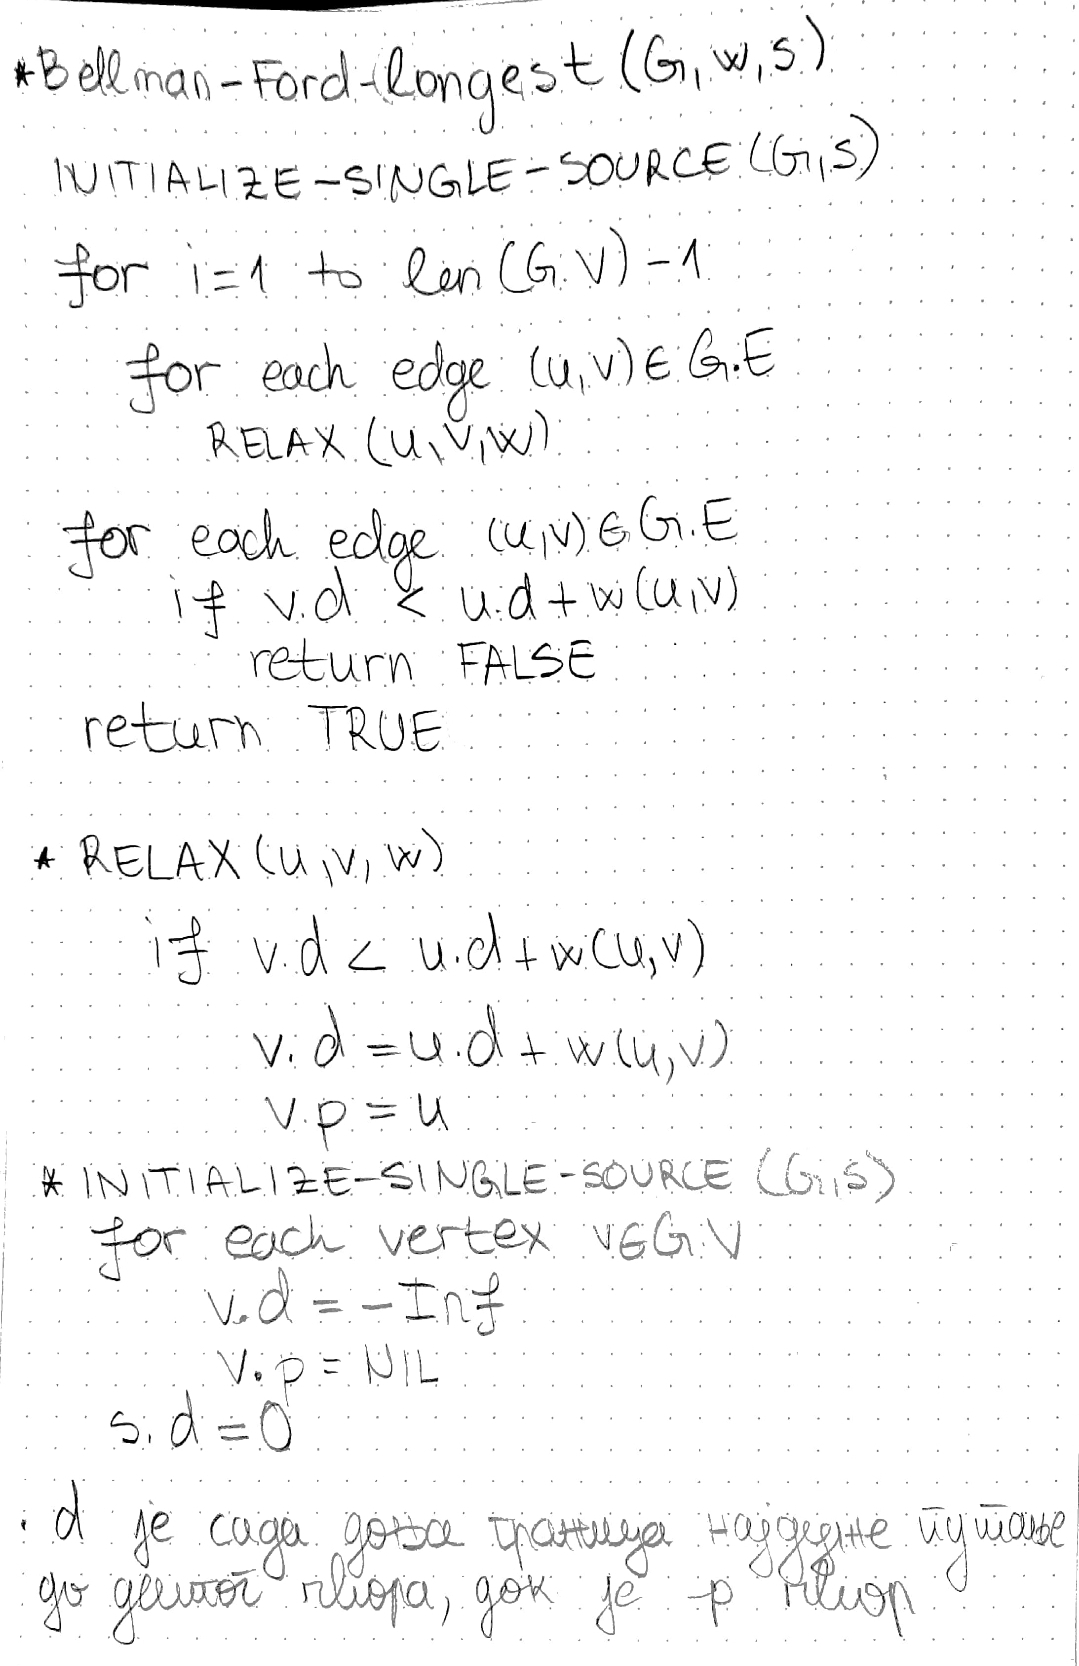 *Bellman-Ford-longest (G, w, s)
INITIALIZE-SINGLE-SOURCE (G, s)
for i=1 to len (G.V) -1
for each edge (u, v) ∈ G.E
RELAX (u, v, w)
for each edge (u, v) ∈ G.E
if v.d < u.d + w(u, v)
return FALSE
return TRUE
* RELAX (u, v, w)
if v.d < u.d + w(u, v)
v.d = u.d + w(u, v)
v.p = u
* INITIALIZE-SINGLE-SOURCE (G, s)
for each vertex v ∈ G.V
v.d = -Inf
v.p = NIL
s.d = 0
. d је сада доња граница најдуже путање
до датог чвора, док је p чвор